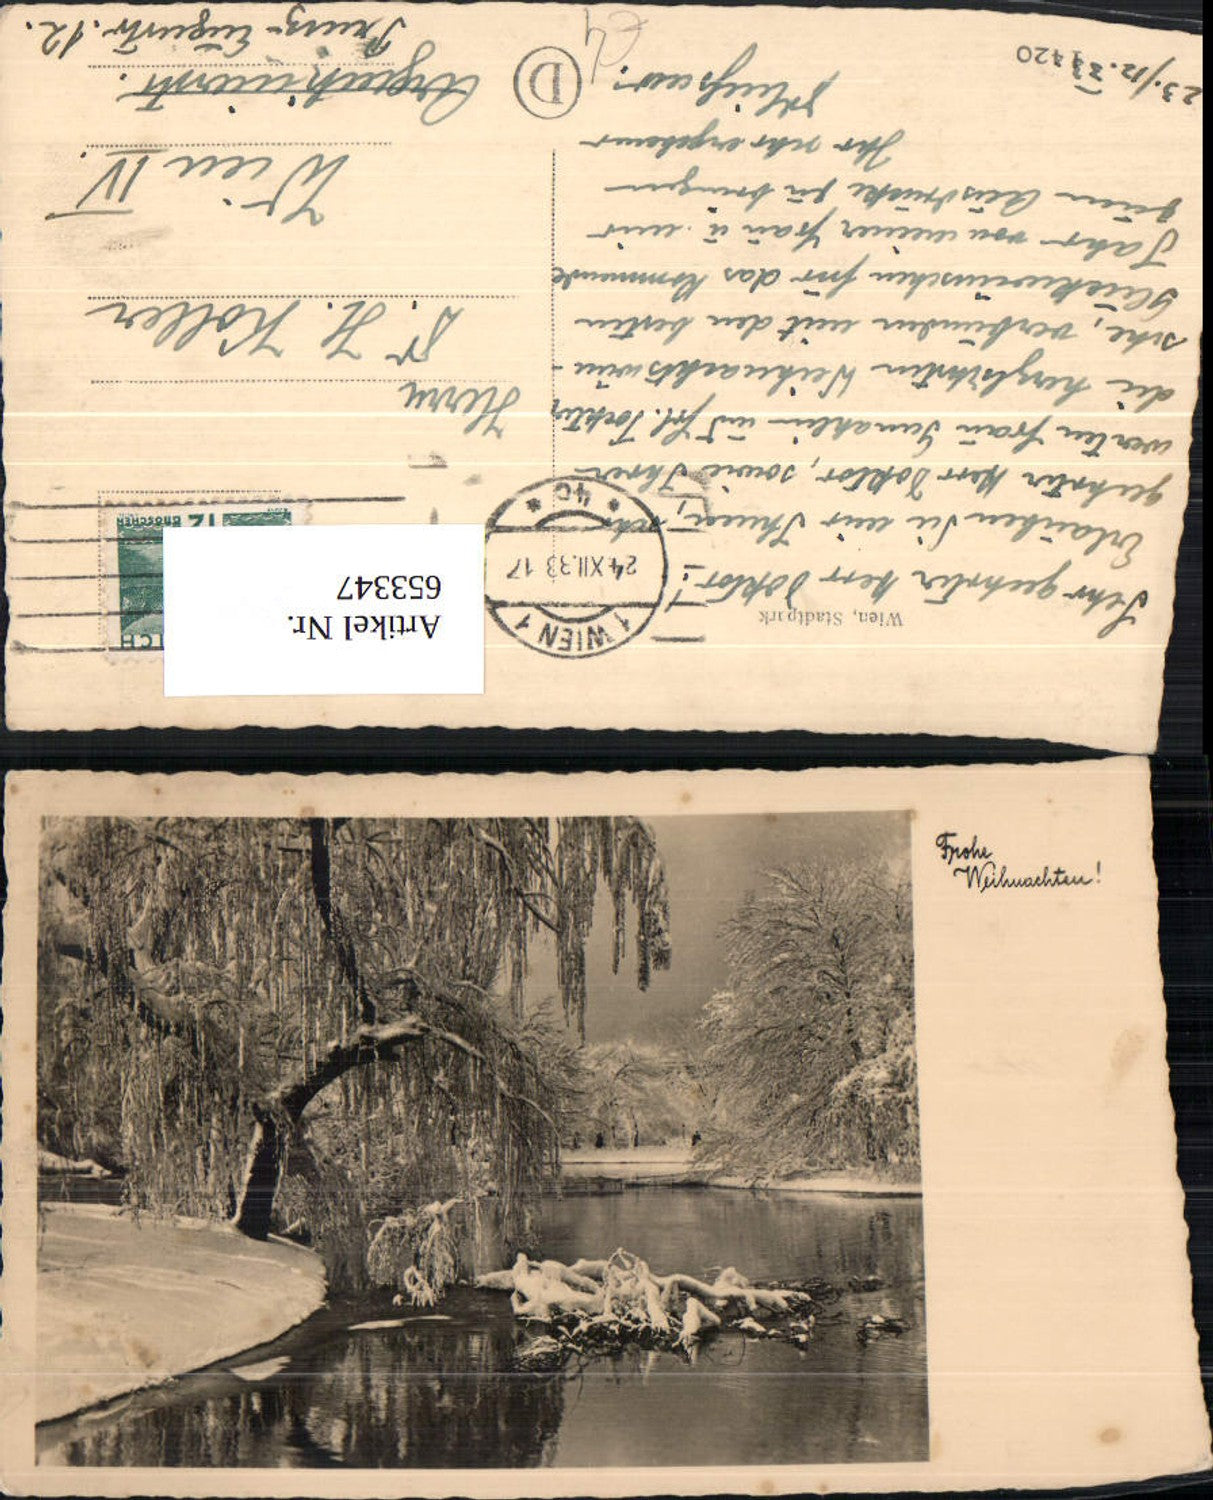 Wien, Stadtpark
Sehr geehrter Herr Doktor!
Erlauben Sie mir Ihnen, sehr
geehrter Herr Doktor, sowie Ihrer
werten Frau Gemahlin und Frl. Tochter
die herzlichsten Weihnachtswün-
sche, verbunden mit den besten
Glückwünschen für das kommende
Jahr von meiner Frau u. mir
zum Ausdrucke zu bringen
Ihr sehr ergebener
23./12.33
420
D
1 WIEN 1
24.XII.33 17
* 4c *
12 GROSCHEN
Herrn
Dr. H. Koller
Wien IV.
Argentinierstr.
Prinz-Eugenstr. 12.
Artikel Nr.
653347
Frohe
Weihnachten!